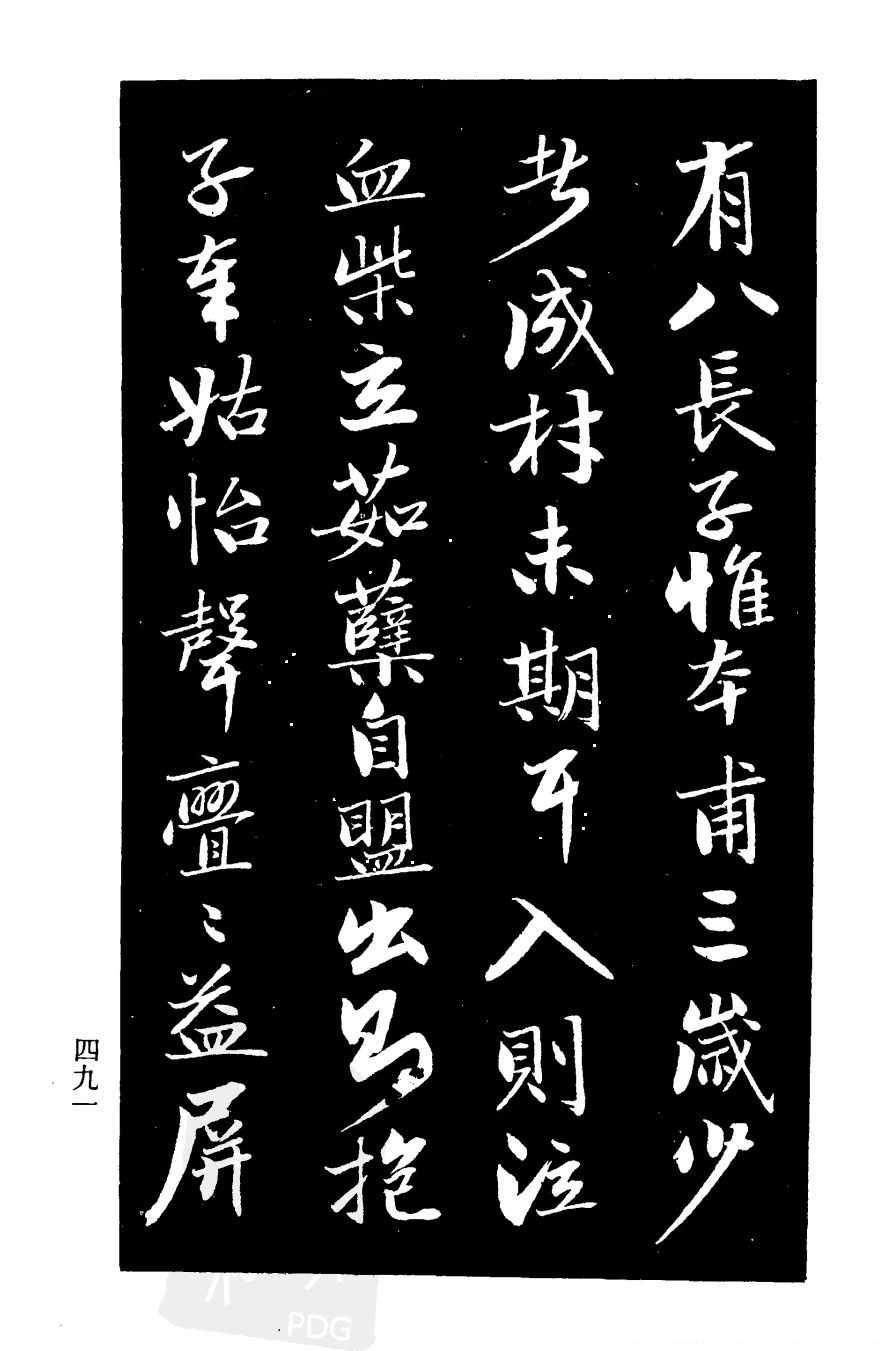 有八長子惟本甫三歲少
者成材未期耳入則泣
血柴立茹蘗自盟出即抱
子奉姑怡聲亹〻益屏
四九一
PDG